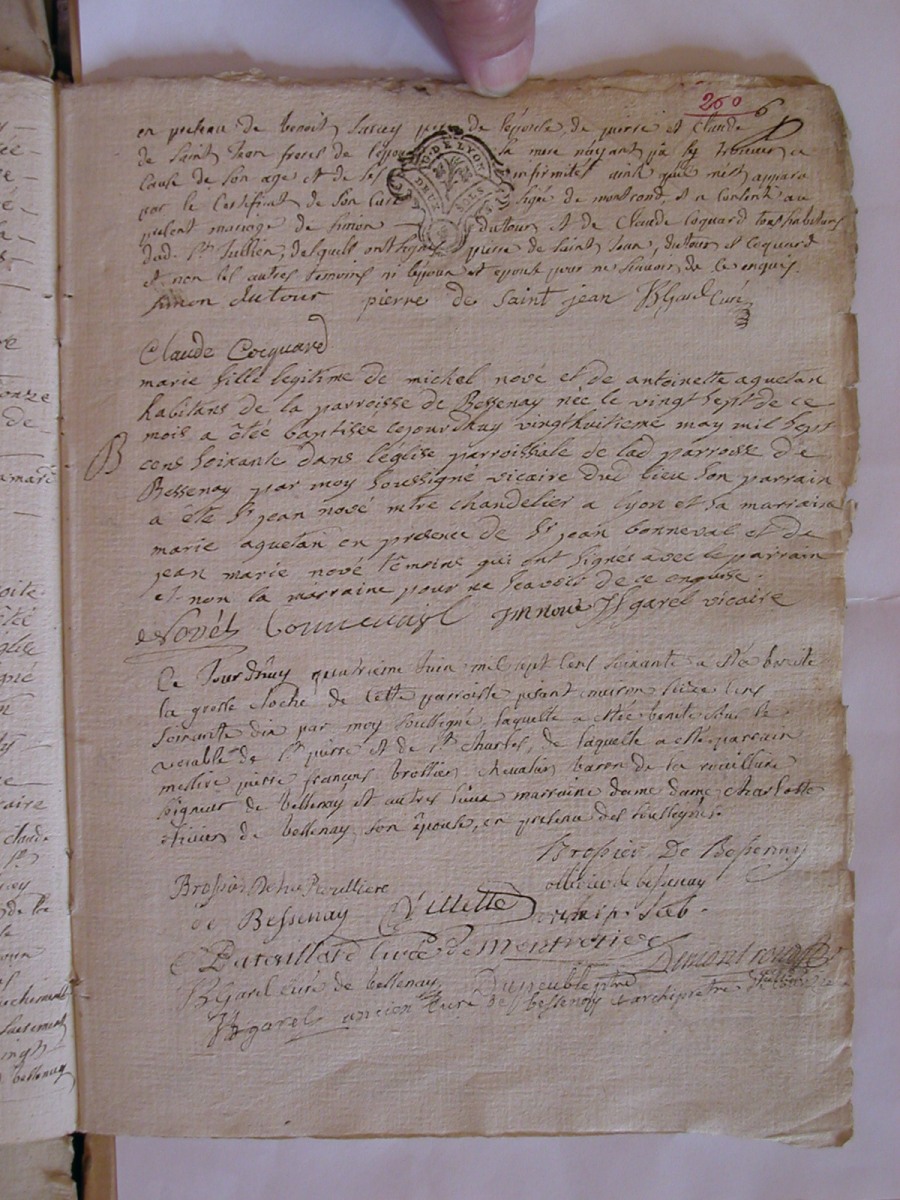 260 6
en presence de benoit pere de lépouse, de pierre et Claude
de Saint Jean freres de la mere nayant pû sy trouver a
Cause de son age et de ses infirmités ainsi que mest apparu
par le Certificat de son Curé signé de montrond, et a Consenti au
present mariage de Simon dutour et de Claude Coquard tous habitans
dud. St Jullien, desquels ont signés pierre de Saint Jean, dutour et Coquard
et non les autres temoins ni lepoux et epouse pour ne sçavoir de ce enquis
G. DE LYON
DEUX SOLS
Simon dutour pierre de saint jean Garel Curé
Claude Cocquard
marie fille legitime de michel nové et de antoinette aguetan
habitans de la parroisse de Bessenay née le vingt sept de ce
mois a êtée baptisée cejourdhuy vingthuitieme may mil sept
B
cens soixante dans l'église parroissiale de lad parroisse de
Bessenay par moy soussigné vicaire dud lieu son parrain
a été Sr jean nové mtre chandelier a lyon et sa marraine
marie aguetan en presence de Sr jean bonneval et de
jean marie nové témoins qui ont signés avec le parrain
et non la marraine pour ne sçavoir de ce enquise.
Novét bonnevial jm nové JGarel vicaire
Ce Jourdhuy quatrieme Juin mil sept cens soixante a été benite
la grosse cloche de cette parroisse pesant environ seize cens
soixante dix par moy soussigné, laquelle a estée benite sous le
vocable de St pierre et de St Charles, de laquelle a esté parrain
messire pierre françois brossier, chevalier baron de la rouilliere
seigneur de bessenay et autres lieux marraine dame dame charlotte
olivier de bessenay son épouse, en presence des soussignés.
Brossier De Bessenay
Brossier De la Roulliere
ollivier de bessenay
de Bessenay Villette
Dataillard Curé de Montrotier
Garel curé de bessenay Dumeuble ptre
JGarel ancien Curé de bessenay et archipretre